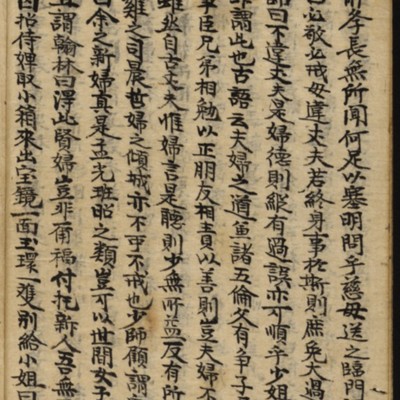 孝長無所聞何足以塞明問乎慈母送之臨門
曰必敬必戒毋違丈夫若終身事於斯則庶免大過
曰不違丈夫是婦德則縱有過誤亦可順乎少姐
非謂此也古語云夫婦之道兼諸五倫父有爭子
爭臣兄弟相勉以正朋友相責以善則豈夫婦不
雖然自古丈夫惟婦言是聽則少無所益反有所
雞之司晨哲婦之傾城亦不可不戒也少師顧謂
曰余之新婦真是孟光班昭之類豈可以世間女子
且謂翰林曰得此賢婦豈非甭福付托新人吾無
因招侍婢取小箱來出宝鏡一面玉環一雙別給小姐曰